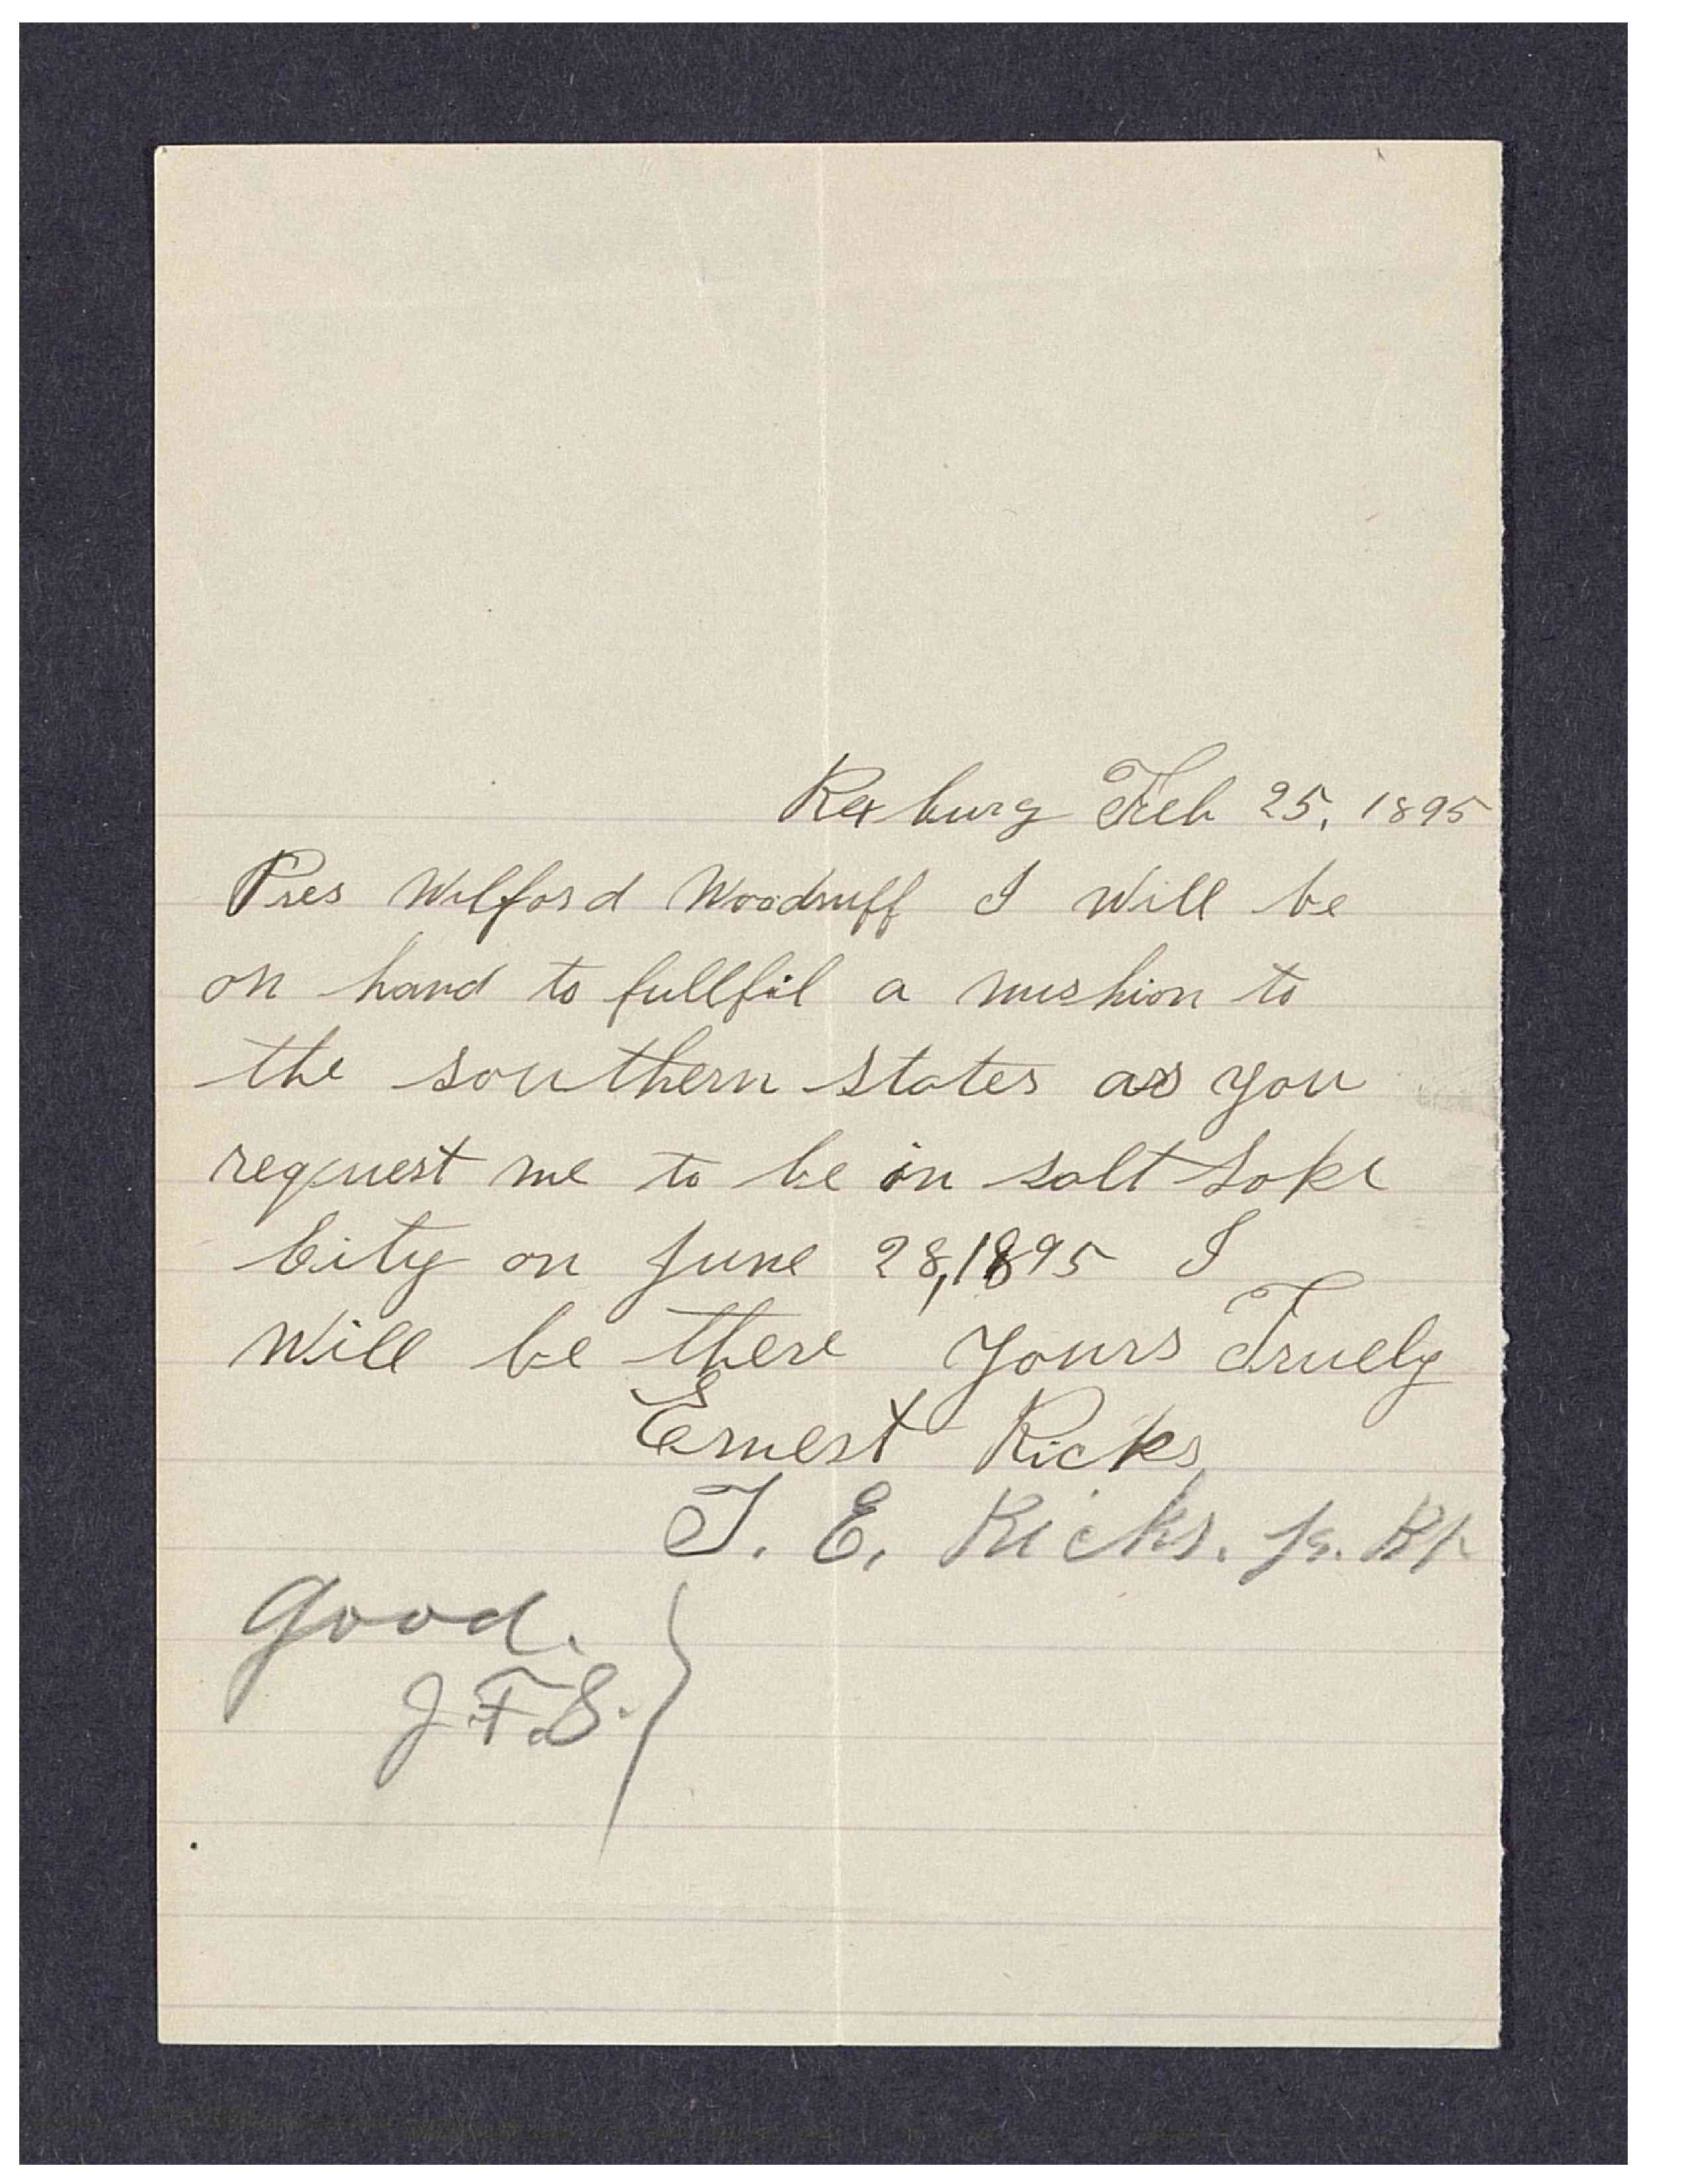 Rexburg Feb 25, 1895
Pres Wilford Woodruff I will be
on hand to fullfil a mishion to
the southern states as you
request me to be in salt Lake
City on June 28, 1895 I
will be there Yours Truely
Ernest Ricks
T. E. Ricks. Jr. Bp
Good.
J. F. S.